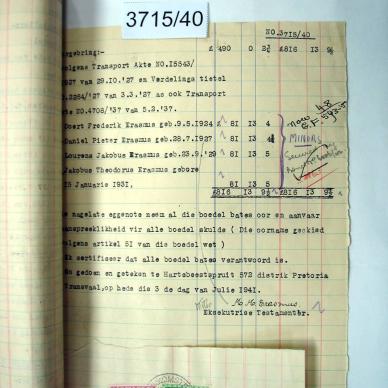 3715/40
NO.3715/40
gebring:-  £490 0 2¾ £816 13 9¾
olgens Transport Akte NO.15543/
1927 van 29.10.'27 en Verdelings tietel
2264/'27 van 3.3.'27 as ook Transport
kte NO.4708/'37 van 5.2.'37.
Coert Frederik Erasmus geb.9.5.1924 £ 81 13 4
Daniel Pieter Erasmus geb.28.7.1927 81 13 4
Lourens Jakobus Erasmus geb.23.9.'29 81 13 5
Jakobus Theodorus Erasmus gebore
15 Januarie 1931, 81 13 5
£816 13 9¾ £816 13 9¾
Now 48
MINORS
e nagelate eggenote neem al die boedel bates oor en aanvaar
aanspreeklikheid vir alle boedel skulde ( Die oorname geskied
volgens artikel 51 van die boedel wet )
k sertifiseer dat alle boedel bates verantwoord is.
edoen en geteken te Hartebeestspruit 572 distrik Pretoria
Transvaal,op hede die 3 de dag van Julie 1941.
M. M. Erasmus.
Eksekutrise Testamentêr.